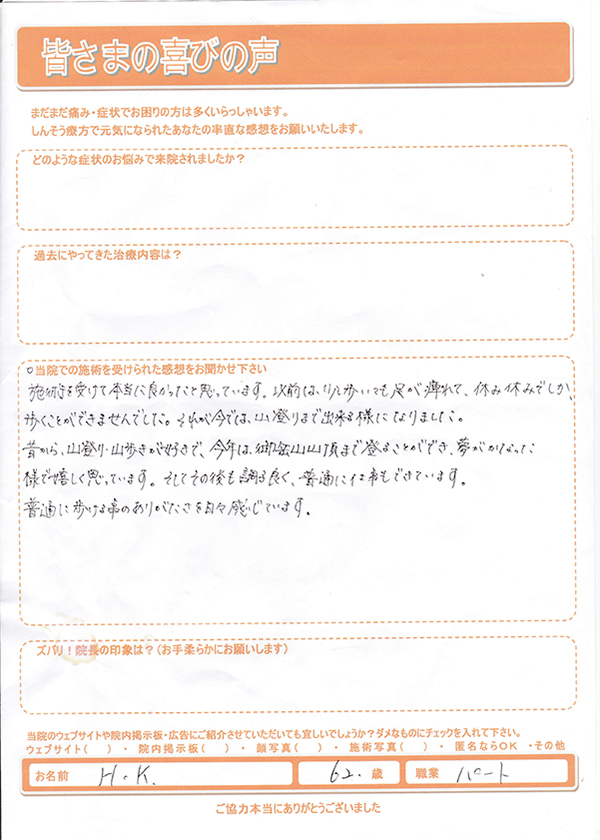 皆さまの喜びの声
まだまだ痛み・症状でお困りの方は多くいらっしゃいます。
しんそう療方で元気になられたあなたの率直な感想をお願いいたします。
どのような症状のお悩みで来院されましたか？
過去にやってきた治療内容は？
○当院での施術を受けられた感想をお聞かせ下さい
施術を受けて本当に良かったと思っています。以前は、少し歩いても足が痺れて、休み休みでしか
歩くことができませんでした。それが今では、山登りまで出来る様になりました。
昔から、山登り・山歩きが好きで、今年は、御岳山山頂まで登ることができ、夢がかなった
様で嬉しく思っています。そしてその後も調子良く、普通に仕事もできています。
普通に歩ける事のありがたさを日々感じています。
ズバリ！院長の印象は？（お手柔らかにお願いします）
当院のウェブサイトや院内掲示板・広告にご紹介させていただいても宜しいでしょうか？ダメなものにチェックを入れて下さい。
ウェブサイト（　）・院内掲示板（　）・顔写真（　）・施術写真（　）・匿名ならOK ・その他
お名前 H.K. 62. 歳 職業 パート
ご協力本当にありがとうございました